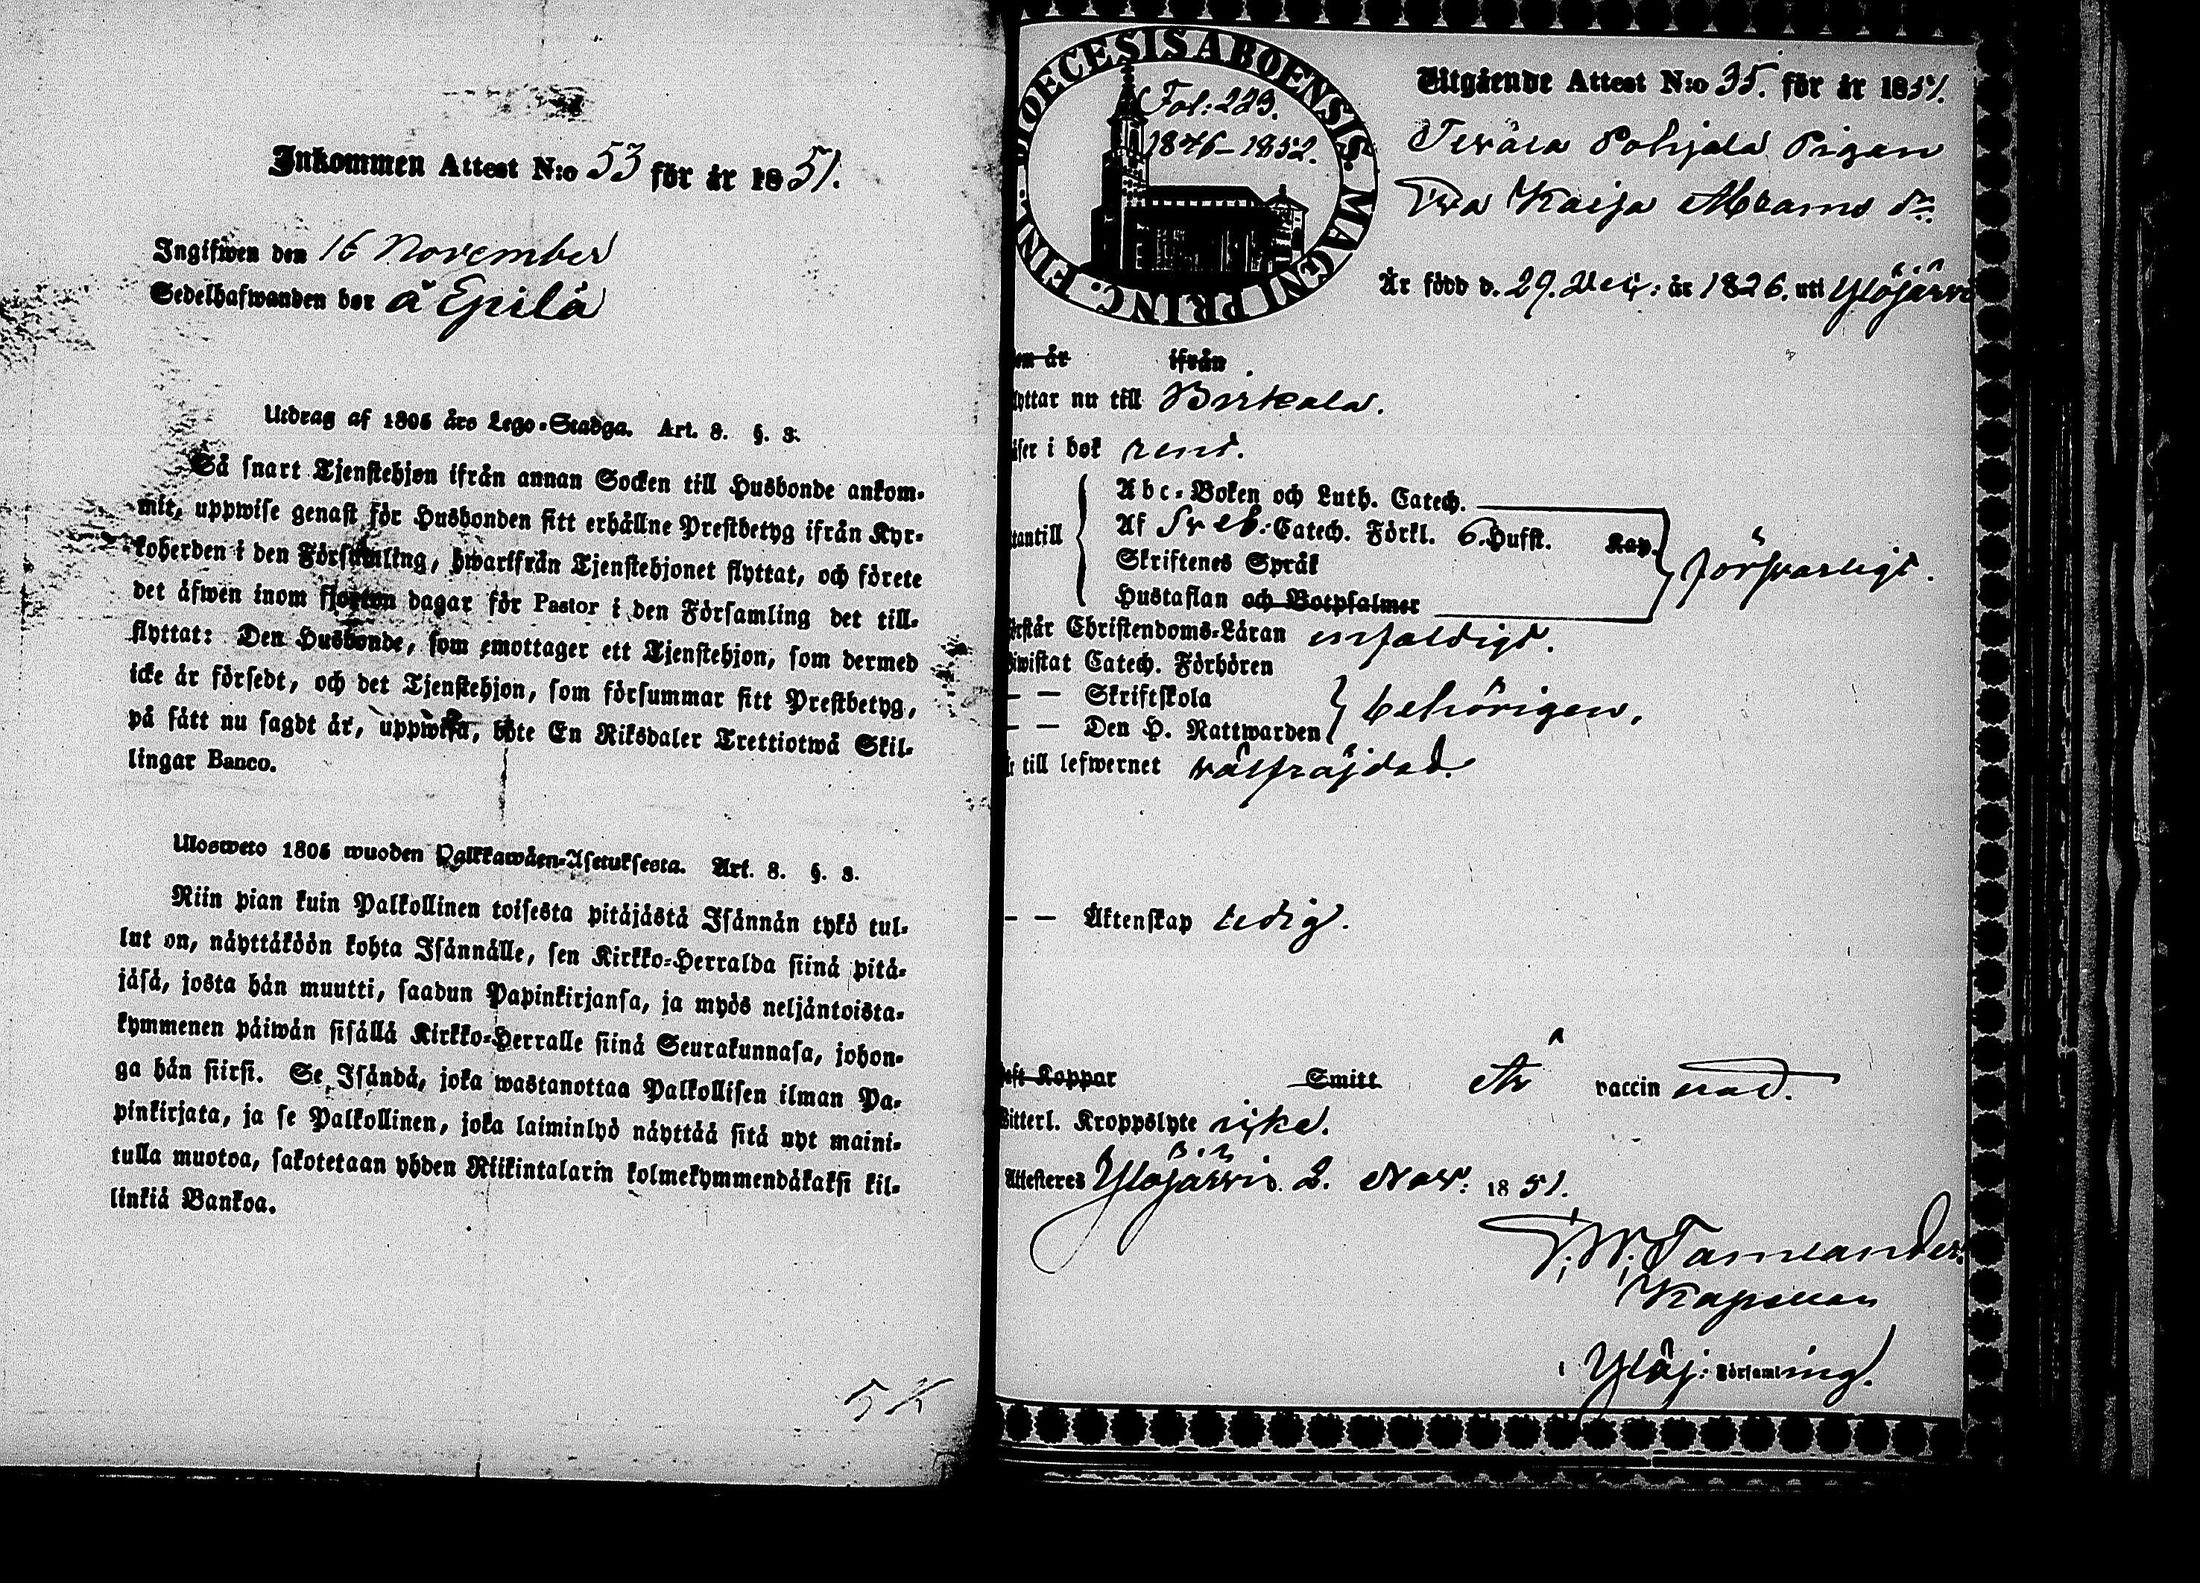 Inkommen Attest N:o 53 för år 1851.
Ingifwen den 16 November
Sedelhafwanden bor å Epilä
Utdrag af 1805 års Lego-Stadga. Art. 8. §. 3.
Så snart Tjenstehjon ifrån annan Socken till Husbonde ankom-
mit, uppwise genast för Husbonden sitt erhållne Prestbetyg ifrån Kyr-
koherden i den Församling, hwarifrån Tjenstehjonet flyttat, och förete
det äfwen inom fjorton dagar för Pastor i den Församling det till-
flyttat: Den Husbonde, som emottager ett Tjenstehjon, som dermed
icke är försedt, och det Tjenstehjon, som försummar sitt Prestbetyg,
på sätt nu sagdt är, uppwisa, böte En Riksdaler Trettiotwå Skil-
lingar Banco.
Ulosweto 1805 wuoden Palkkawäen-Asetuksesta. Art. 8. §. 3.
Niin pian kuin Palkollinen toisesta pitäjästä Isännän tykö tul-
lut on, näyttäköön kohta Isännälle, sen Kirkko-Herralda siinä pitä-
jäsä, josta hän muutti, saadun Papinkirjansa, ja myös neljäntoista-
kymmenen päiwän sisällä Kirkko-Herralle siinä Seurakunnasa, johon-
ga hän siirsi. Se Isändä, joka wastanottaa Palkollisen ilman Pa-
pinkirjata, ja se Palkollinen, joka laiminlyö näyttää sitä nyt maini-
tulla muotoa, sakotetaan yhden Riikintalarin kolmekymmendäkaksi kil-
linkiä Bankoa.
DIOECESIS ABOENSIS. MAGNI PRINC. FINL.
Fol: 223.
1846-1852.
Utgående Attest N:o 35. för år 1851.
Pohjala Pigan
Kaisa Abrams dr.
Är född d. 29. Dec: år 1826. uti Ylöjärvi
en år ifrån
yttar nu till Birkala.
äser i bok rent.
tantill
Abc-Boken och Luth. Catech.
Af Sveb: Catech. Förkl. 6. Hufst. Kap.
Skriftenes Språk
Hustaflan och Botpsalmer
försvarligt.
örstår Christendoms-Läran enfaldigt.
iwistat Catech. Förhören
— — Skriftskola
— — Den H. Nattwarden
behörigen.
r till lefwernet välfräjdad.
— — Äktenskap ledig.
aft Koppor Smitt är vaccin erad.
itterl. Kroppslyte icke.
Attesteres Ylöjärvi. 2. Nov: 1851.
Tamlander.
Kapellan
i Ylöj: Församling.